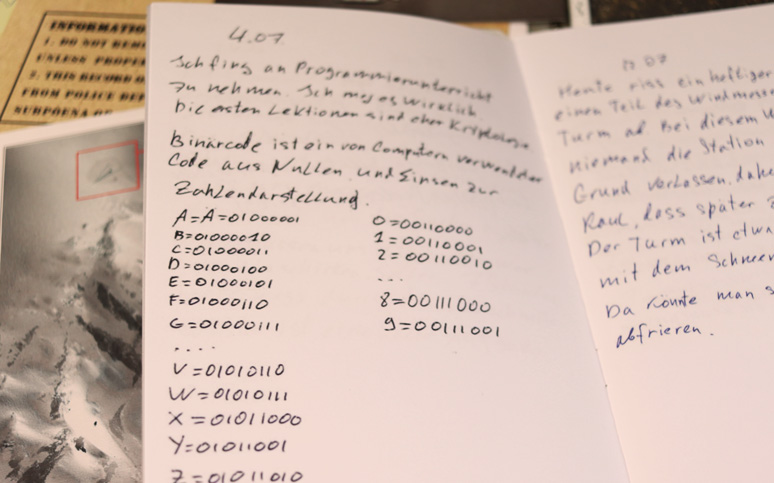 INFORMATION
1. DO NOT REM
UNLESS PROPE
2. THIS RECORD O
FROM POLICE DEP
SUBPOENA OF
4.07.
Ich fing an Programmierunterricht
zu nehmen. Ich mag es wirklich
Die ersten Lektionen sind eher Kryptologie
Binärcode ist ein von Computern verwendeter
Code aus Nullen und Einsen zur
Zahlendarstellung.
A=A=01000001
B=01000010
C=01000011
D=01000100
E=01000101
F=01000110
G=01000111
....
V=01010110
W=01010111
X=01011000
Y=01011001
Z=01011010
0=00110000
1=00110001
2=00110010
...
8=00111000
9=00111001
07
Heute riss ein heftiger
einen Teil des Windmess
Turm ab Bei diesem
niemand die Station
Grund verlassen, dahe
Raul, dass später
Der Turm ist etwa
mit dem Schnee
Da könnte man s
abfrieren.